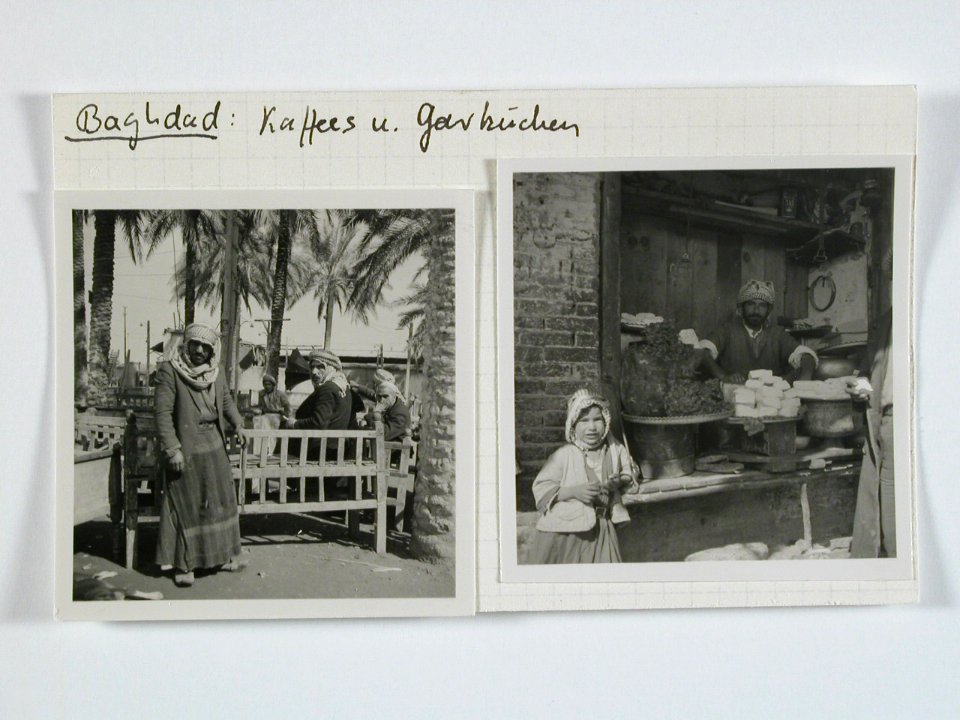 Baghdad: Kaffees u. Garküchen